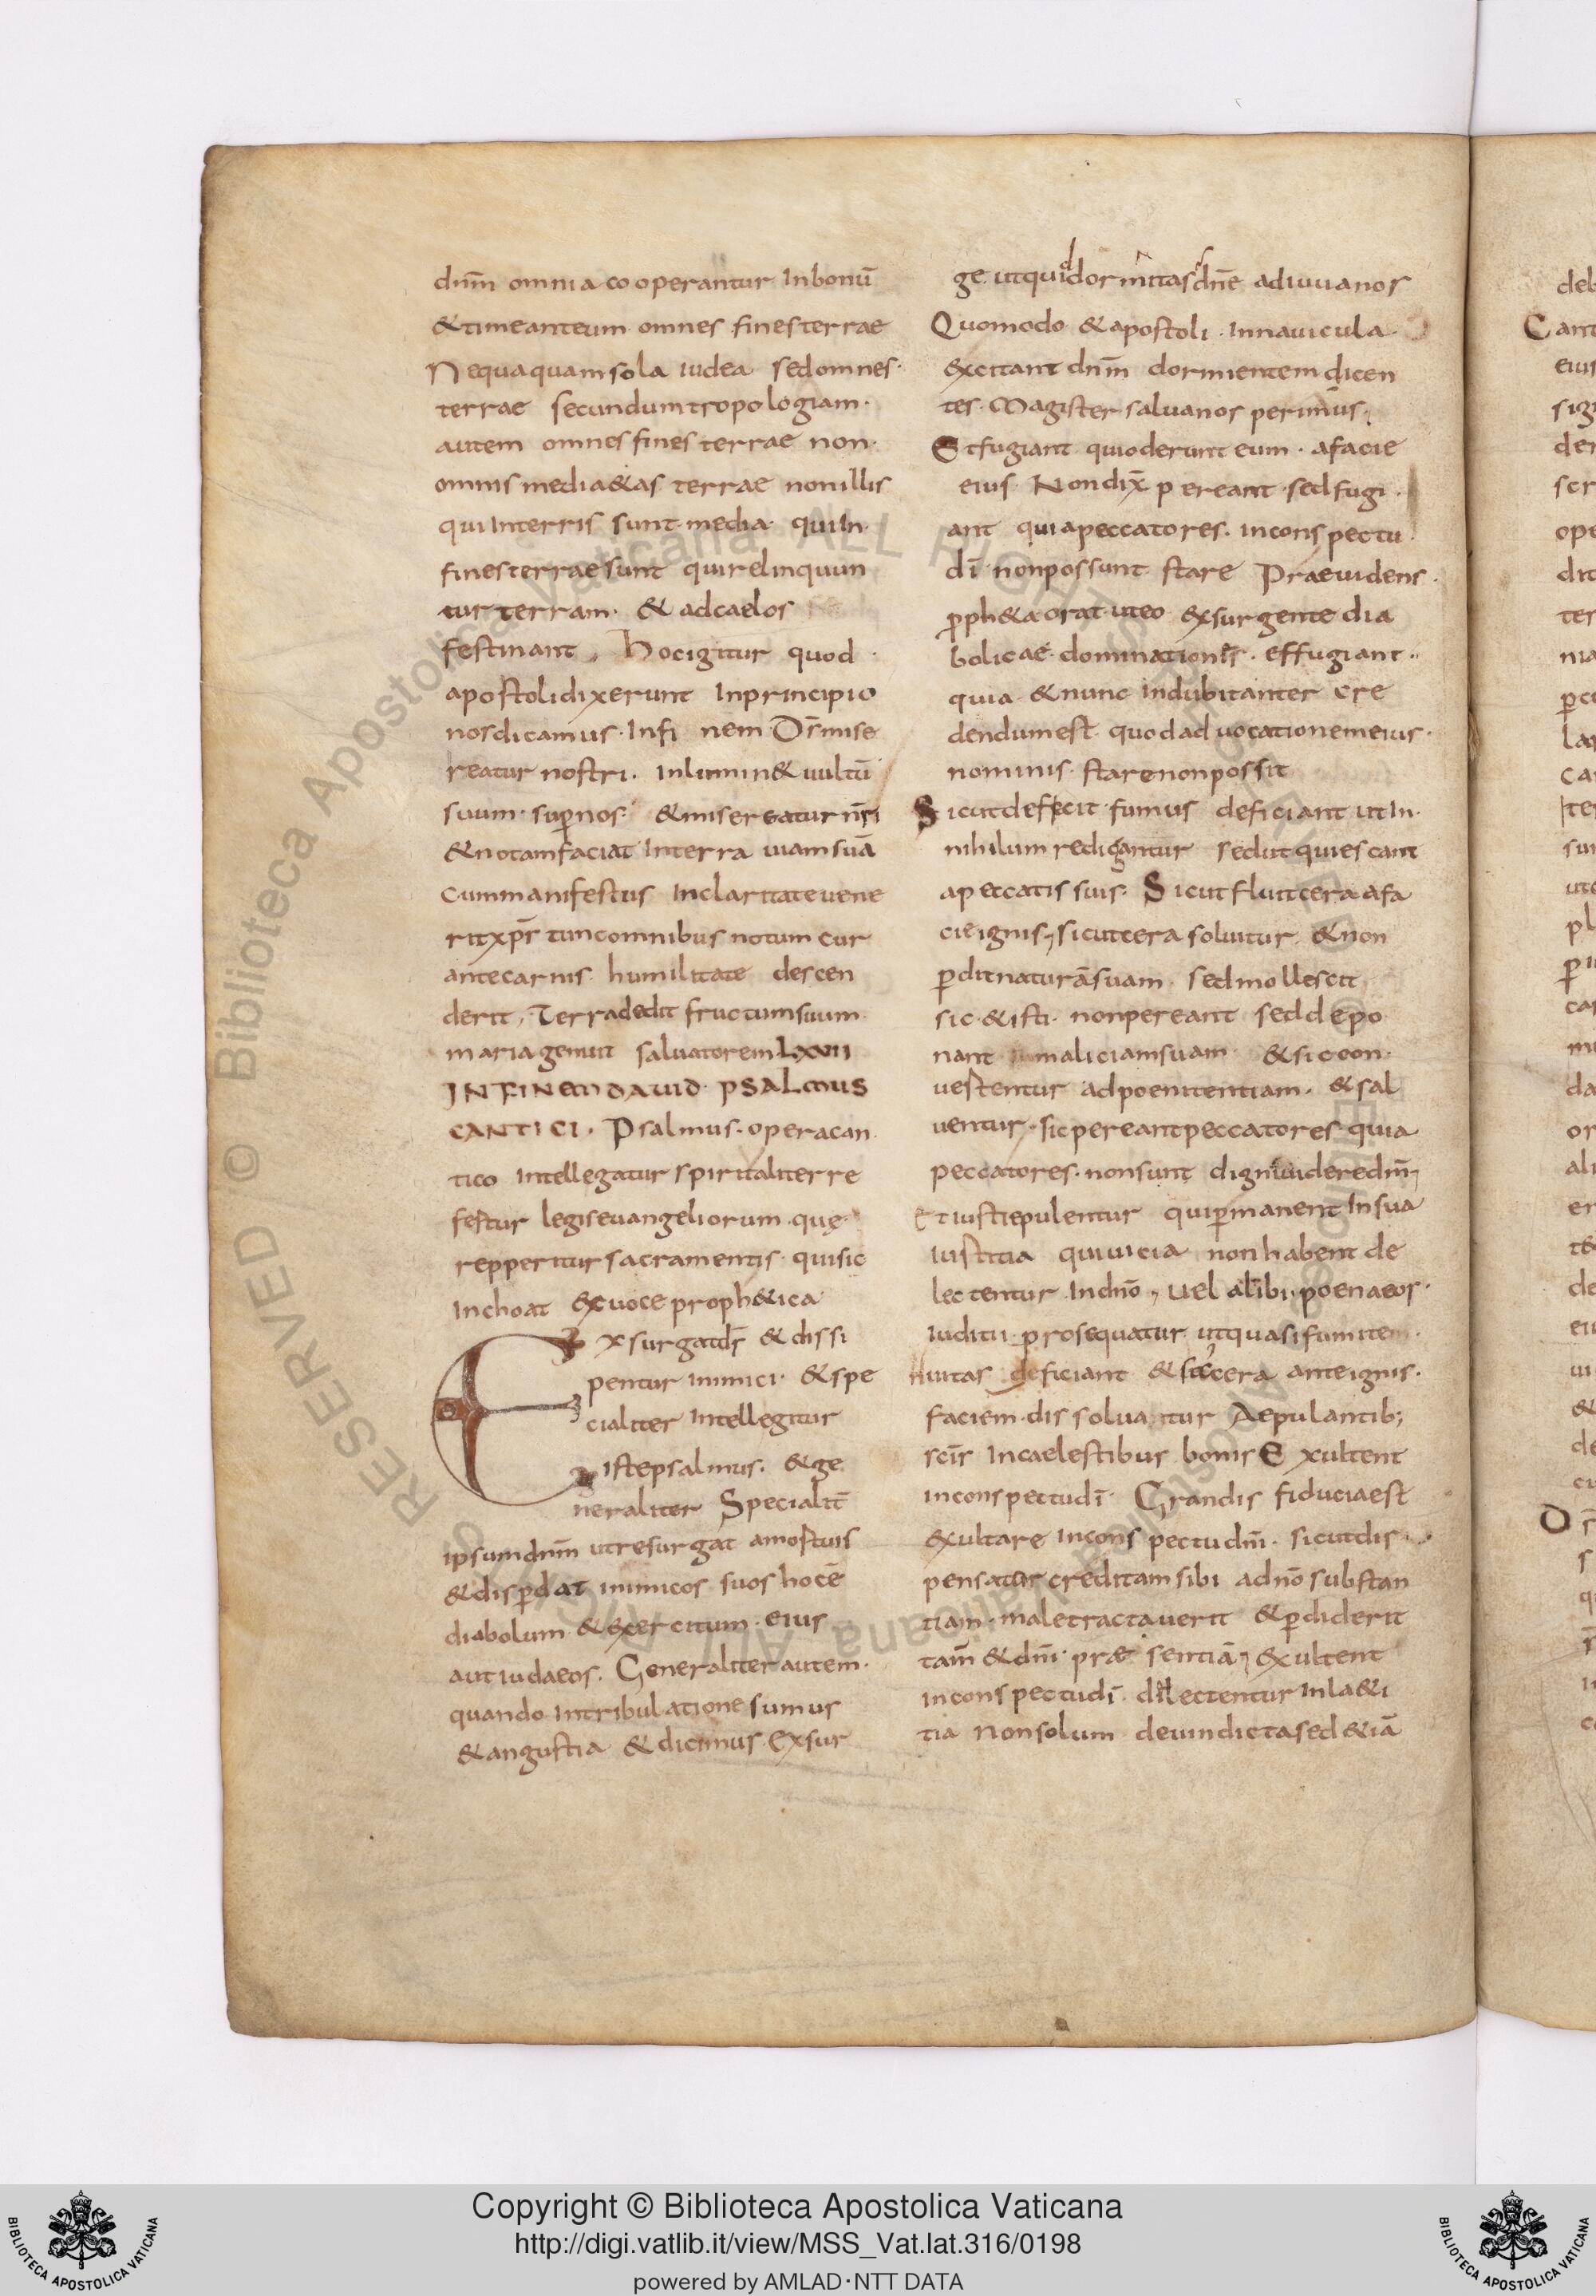 dnm̄ omnia cooperantur Inbonū
&timeanteum omnes finesterrae
Nequaquamsola iudea sedomnes·
terrae secundumtropologiam·
autem omnesfines terrae non·
omnis media&as terrae nonillis
quiInterris sunt media· quiIn·
finesterraesunt quirelinquun
tur terram· & adcaelos
festinant, Hocigitur quod·
apostolidixerunt Inprincipio
nosdicamus· Infi nem Ds̄mise
reatur nostri. Inlumin& uultū
suum· sup̱nos· &misereatur nr̄i
&notamfaciat Interra uiamsuā
Cummanifestus Inclaritateuene
ritxps̄ tuncomnibus notum cur
antecarnis humilitate descen
derit, Terradedit fructumsuum
maria genuit saluatorem LXVII
INFINEM DAUID· PSALMUS
CANTICI. Psalmus· operacan
tico Intellegatur spiritaliterre
fertur legiseuangeliorum quę
repperitur sacramentis quisic
Inchoat exuoce proph&ica
Exsurgatds̄ & dissi
pentur inimici· & spe
cialiter Intellegitur
istepsalmus. & ge
neraliter Specialit̄
ipsumdnm̄ utresurgat amortuis
&disp̱dat inimicos suos hocē
diabolum & exercitum eius
aut iudaeos. Generaliter autem·
quando Intribulatione sumus
& angustia & dicimus Exsur
ge utquiddormitasdnē adiuuanos
Quomodo & apostoli· Innauicula·
excitant dnm̄ dormientem dicen
tes· Magister saluanos perimus;
Etfugiant quioderunt eum· afacie
eius Nondix̄ pereant sedfugi·
ant quiapeccatores. inconspectu·
dī nonpossunt stare Praeuidens·
p̱ph&a orat uteo exsurgente dia
bolicae· dominationes· effugiant·
quia &nunc indubitanter cre
dendumest quodaduocationemeius·
nominis· starenonpossit
Sicutdefecit fumus deficiant utIn·
nihilum redigantur sedutquiescant
apeccatis suis· Sicut fluitcera afa
cieignis, sicutcera soluitur &non
p̱ditnaturāsuam sedmollescit
sic &isti· nonpereant seddepo
nant maliciamsuam &siccon·
uertentur adpoenitentiam· &sal
uentur· sicpereantpeccatores quia
peccatores· nonsunt digniuideredm̄,
Etiustiepulentur quip̱manent Insua
iustitia quiuicia nonhabent de
lectentur Indnō, uel alibi poenaeos·
iuditii prosequatur utquasifumitem
nuitas deficiant & sicutcera anteignis·
faciem· dissoluantur Aepulantib;
scīs Incaelestibus bonis Exultent
inconspectudī· Grandis fiduciaest
exultare incons pectudnī· sicutdis·
pensatur creditamsibi adnō substan
tiam· maletractauerit &p̱diderit
tam̄ &dnī· prae sentiā, Exultent
inconspectudī dilectentur Inla&i
tia Nonsolum deuindictased&iā